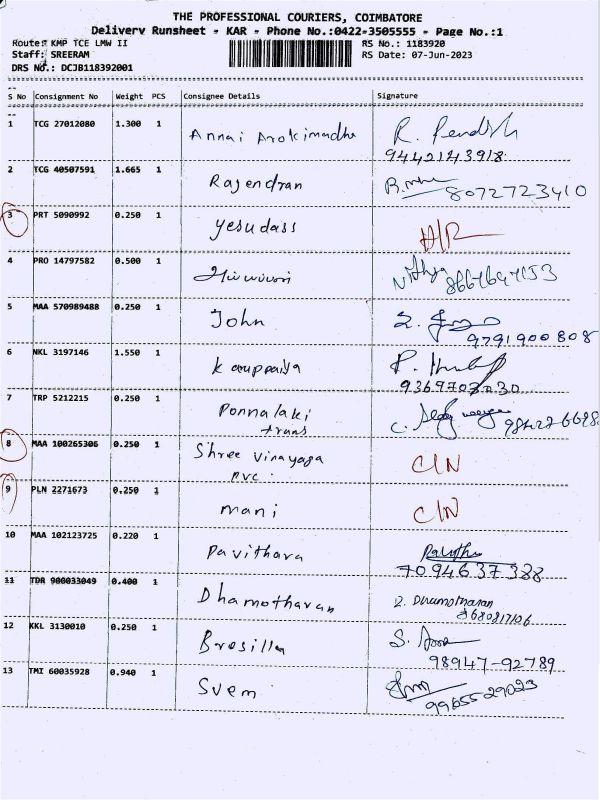 THE PROFESSIONAL COURIERS, COIMBATORE
Delivery Runsheet - KAR - Phone No.:0422-3505555 - Page No.:1
Route: KMP TCE LMW II RS No.: 1183920
Staff: SREERAM RS Date: 07-Jun-2023
DRS No.: DCJB118392001
S No Consignment No Weight PCS Consignee Details Signature
1 TCG 27012080 1.300 1 Annai Arokimadha
9442143918
2 TCG 40507591 1.665 1 Rajendran 8072723410
3 PRT 5090992 0.250 1 Yesudass
4 PRO 14797582 0.500 1 Nithya
5 MAA 570989488 0.250 1 John
9791900808
6 NKL 3197146 1.550 1 Karuppaiya
7 TRP 5212215 0.250 1 Ponnalaki
trans
8 MAA 100265306 0.250 1 Shree Vinayaga C/N
pvc.
9 PLN 2271673 0.250 1 mani C/N
10 MAA 102123725 0.220 1 Pavithara
7094637388
11 TDR 900033049 0.400 1 Dhamotharan
12 KKL 3130010 0.250 1 Bresilla
98947-92789
13 TMI 60035928 0.940 1 Svem
9965529023